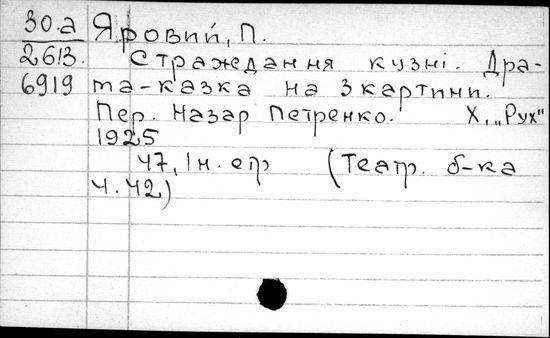 30.а Яровий, П.
2613. Страждання кузні. Дра-
6919 ма-казка на 3 картини.
Пер. Назар Петренко. Х., „Рух"
1925
47, Ін. ст (Театр. б-ка
ч. 42)